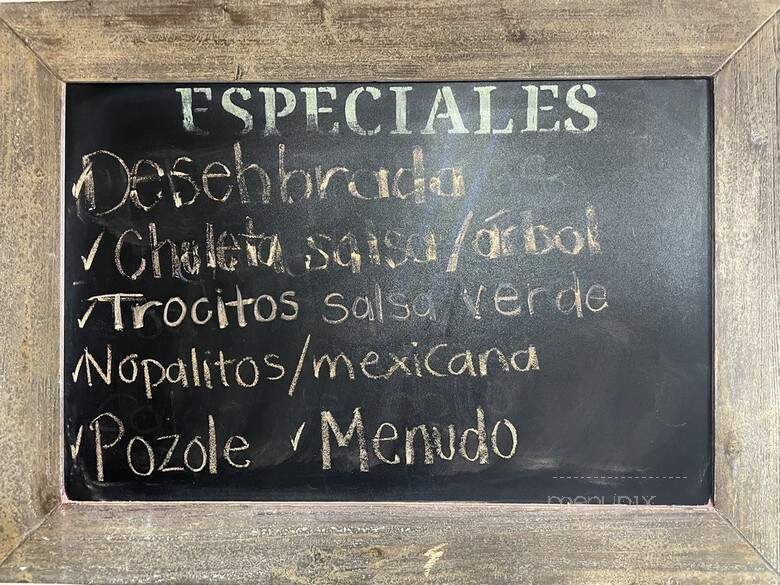 ESPECIALES
✓Desehbrada
✓Chuleta salsa/árbol
✓Trocitos salsa verde
✓Nopalitos/mexicana
✓Pozole ✓Menudo
menupix